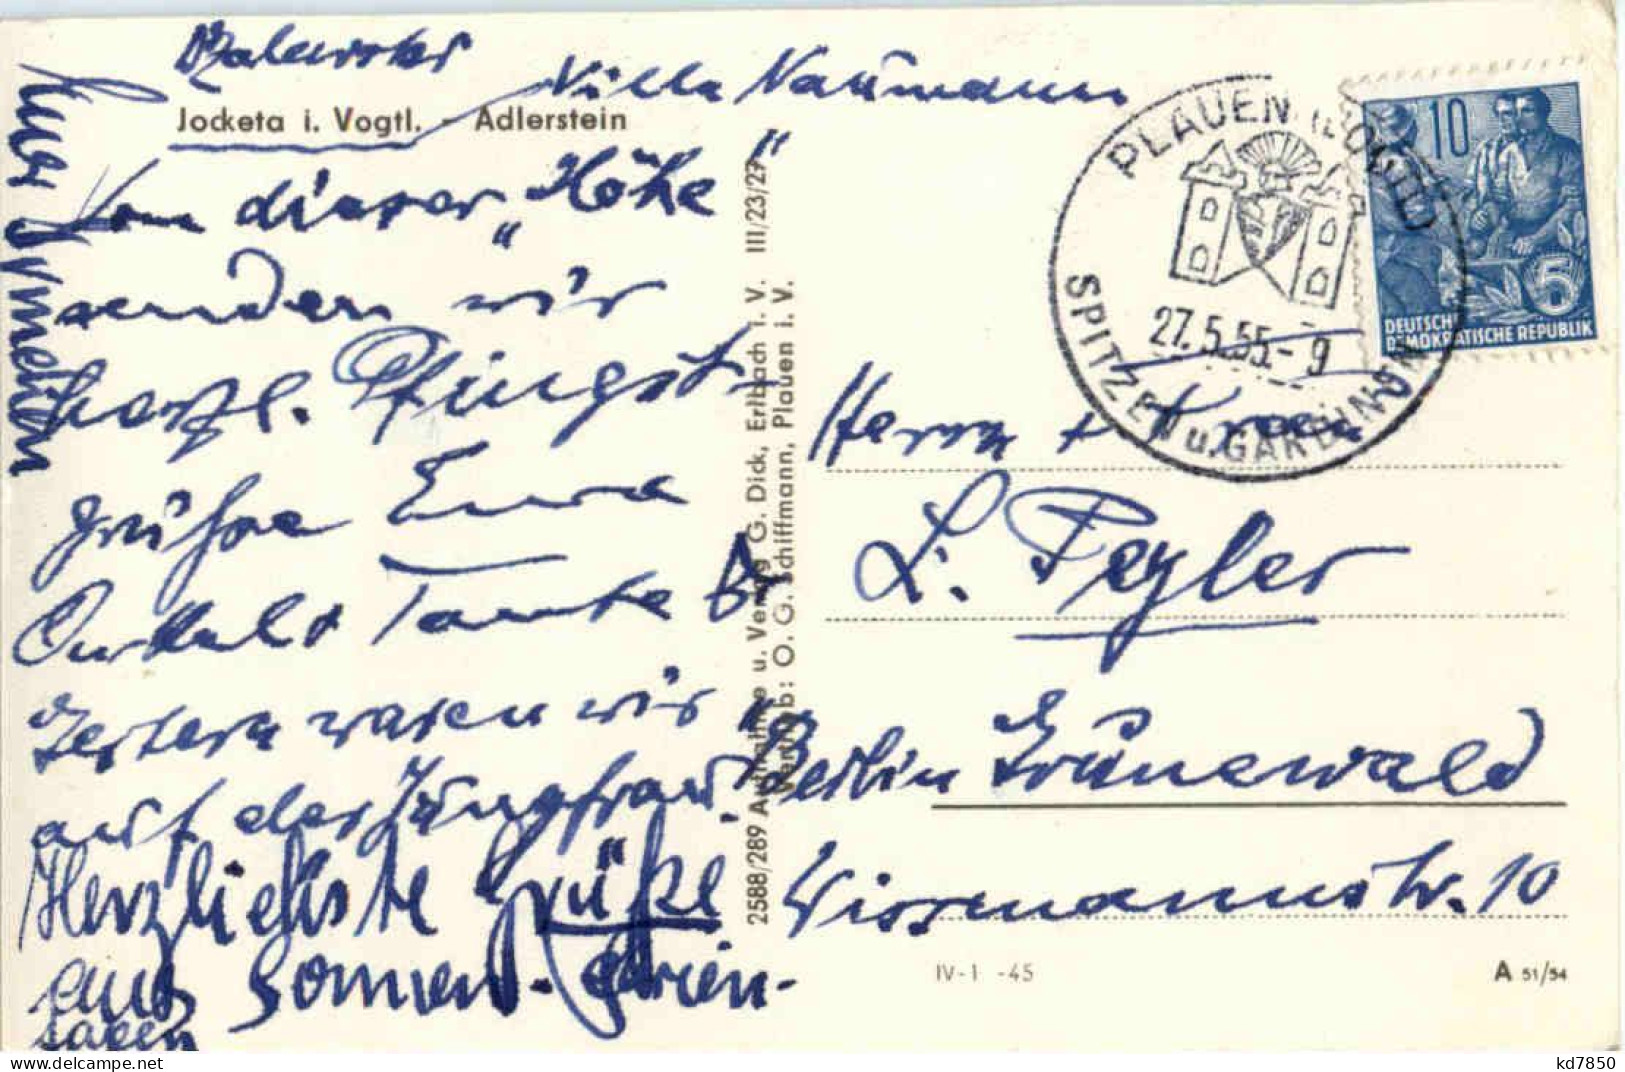 Villa Naumann
Jocketa i. Vogtl. - Adlerstein
Von dieser „Höhe"
senden wir
herzl. Pfingst-
grüsse Eure
Onkel + Tante
Gestern waren wir
auf der Jungfrau.
Herzlichste Grüße
aus sonnen- Ferien-
tagen
2588/289 Aufnahme u. Verlag G. Dick, Erlbach i. V. III/23/27
Vertrieb: O. G. Schiffmann, Plauen i. V.
PLAUEN (VOGTL)
27.5.55.-9
SPITZEN u. GARDINEN
10
5
DEUTSCHE
DEMOKRATISCHE REPUBLIK
Herrn +
L. Pegler
Berlin Grunewald
Wissmannstr. 10
IV-1 -45
A 51/54
kd7850